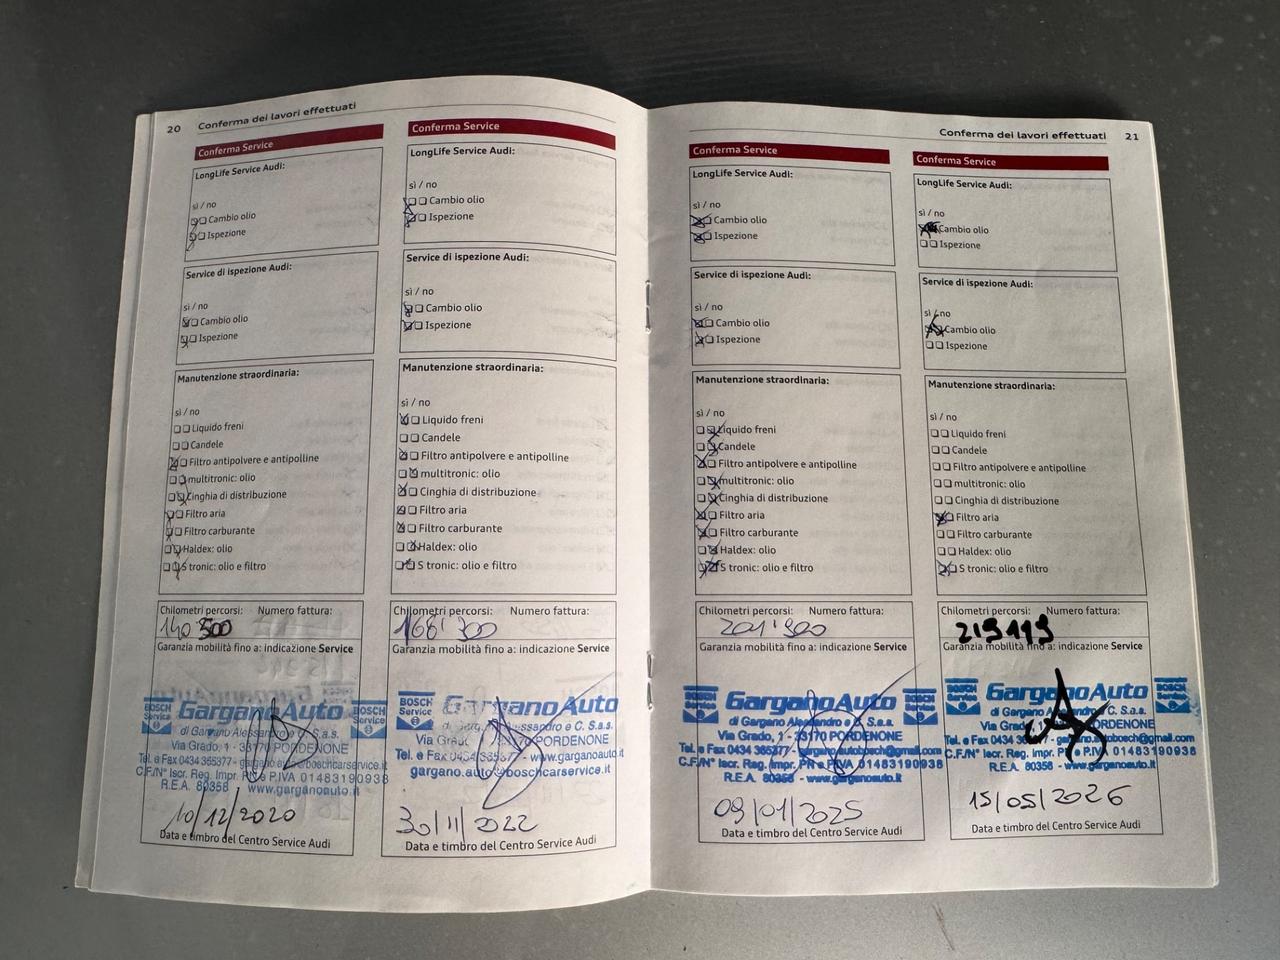 20 Conferma dei lavori effettuati
Conferma Service
LongLife Service Audi:
sì / no
Cambio olio
Ispezione
Service di ispezione Audi:
sì / no
Cambio olio
Ispezione
Manutenzione straordinaria:
sì / no
Liquido freni
Candele
Filtro antipolvere e antipolline
multitronic: olio
Cinghia di distribuzione
Filtro aria
Filtro carburante
Haldex: olio
S tronic: olio e filtro
Chilometri percorsi: Numero fattura:
140 500
Garanzia mobilità fino a: indicazione Service
BOSCH Service GarganoAuto BOSCH Service
di Gargano Alessandro e C. S.a.s.
Via Grado, 1 - 33170 PORDENONE
Tel. e Fax 0434 365377 - gargano.auto@boscharservice.it
C.F./N° Iscr. Reg. Impr. P.IVA 01483190938
R.E.A. 80358 - www.garganoauto.it
10/12/2020
Data e timbro del Centro Service Audi
Conferma Service
LongLife Service Audi:
sì / no
Cambio olio
Ispezione
Service di ispezione Audi:
sì / no
Cambio olio
Ispezione
Manutenzione straordinaria:
sì / no
Liquido freni
Candele
Filtro antipolvere e antipolline
multitronic: olio
Cinghia di distribuzione
Filtro aria
Filtro carburante
Haldex: olio
S tronic: olio e filtro
Chilometri percorsi: Numero fattura:
168'300
Garanzia mobilità fino a: indicazione Service
BOSCH Service GarganoAuto
di Gargano Alessandro e C. S.a.s.
Via PORDENONE
Tel. e Fax 0434 365377 - www.garganoauto.it
gargano.auto@boschcarservice.it
30/11/2022
Data e timbro del Centro Service Audi
Conferma dei lavori effettuati 21
Conferma Service
LongLife Service Audi:
sì / no
Cambio olio
Ispezione
Service di ispezione Audi:
sì / no
Cambio olio
Ispezione
Manutenzione straordinaria:
sì / no
Liquido freni
Candele
Filtro antipolvere e antipolline
multitronic: olio
Cinghia di distribuzione
Filtro aria
Filtro carburante
Haldex: olio
S tronic: olio e filtro
Chilometri percorsi: Numero fattura:
201'300
Garanzia mobilità fino a: indicazione Service
GarganoAuto
di Gargano Alessandro e C. S.a.s.
Via Grado, 1 - 33170 PORDENONE
Tel. e Fax 0434 365377 - gargano.autobosch@gmail.com
C.F./N° Iscr. Reg. Impr. PN e P.IVA 01483190938
R.E.A. 80358 - www.garganoauto.it
09/01/2025
Data e timbro del Centro Service Audi
Conferma Service
LongLife Service Audi:
sì / no
Cambio olio
Ispezione
Service di ispezione Audi:
sì / no
Cambio olio
Ispezione
Manutenzione straordinaria:
sì / no
Liquido freni
Candele
Filtro antipolvere e antipolline
multitronic: olio
Cinghia di distribuzione
Filtro aria
Filtro carburante
Haldex: olio
S tronic: olio e filtro
Chilometri percorsi: Numero fattura:
219119
Garanzia mobilità fino a: indicazione Service
BOSCH Service GarganoAuto
di Gargano e C. S.a.s.
Via PORDENONE
Tel. e Fax 0434 gargano.autobosch@gmail.com
C.F./N° Iscr. Reg. Impr. PN e P.IVA 01483190938
R.E.A. 80358 - www.garganoauto.it
15/05/2026
Data e timbro del Centro Service Audi